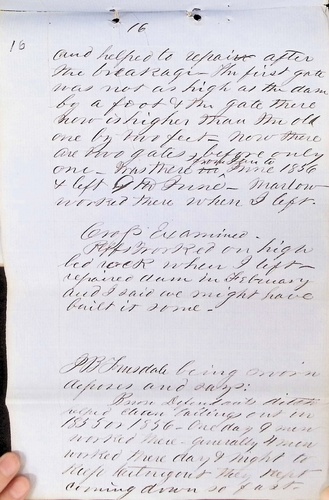 16
16
and helped to repair after
the breakage - the first gate
was not as high as the dam
by a foot & the gate there
now is higher than the old
one by two feet - now there
are two gates, before only
one - I was there from June 1856
& left in June - Marlow
worked there when I left.
Cross Examined.
Worked on high
bed rock when I left -
repaired dam in February
and I said we might have
built it some -
J B Truesdale being sworn
deposes and says:
Know Defendants ditch
washed down tailings out in
1855 or 1856 - One day 9 men
worked there - generally 4 men
worked there day & night to
keep it they kept
coming down so fast.